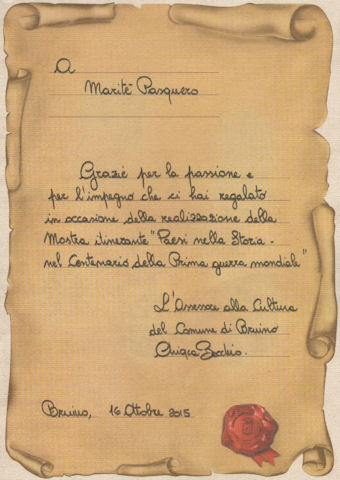 A
Maritè Pasquero
Grazie per la passione e
per l'impegno che ci hai regalato
in occasione della realizzazione della
Mostra itinerante "Paesi nella Storia -
nel Centenario della Prima guerra mondiale"
L'Assessore alla Cultura
del Comune di Bruino
Chiara Zecchio.
Bruino, 16 Ottobre 2015